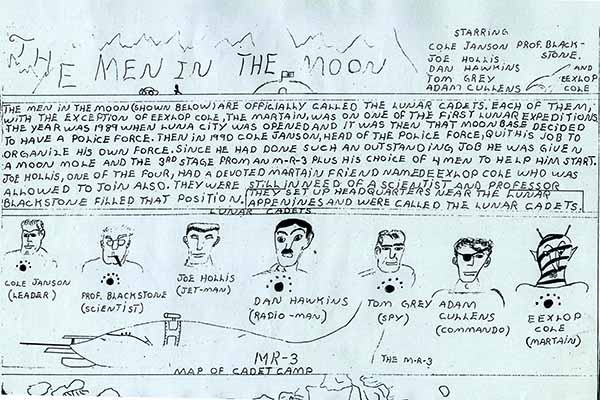 THE MEN IN THE MOON
STARRING
COLE JANSON PROF. BLACK-
STONE.
JOE HOLLIS
DAN HAWKINS
TOM GREY
ADAM CULLENS
AND
EEXLOP
COLE
THE MEN IN THE MOON (SHOWN BELOW) ARE OFFICIALLY CALLED THE LUNAR CADETS. EACH OF THEM,
WITH THE EXCEPTION OF EEXLOP COLE, THE MARTAIN, WAS ON ONE OF THE FIRST LUNAR EXPEDITIONS
THE YEAR WAS 1989 WHEN LUNA CITY WAS OPENED AND IT WAS THEN THAT MOONBASE DECIDED
TO HAVE A POLICE FORCE. THEN IN 1990 COLE JANSON, HEAD OF THE POLICE FORCE, QUIT HIS JOB TO
ORGANIZE HIS OWN FORCE. SINCE HE HAD DONE SUCH AN OUTSTANDING JOB HE WAS GIVEN
A MOON MOLE AND THE 3RD STAGE FROM AN M-R-3 PLUS HIS CHOICE OF 4 MEN TO HELP HIM START.
JOE HOLLIS, ONE OF THE FOUR, HAD A DEVOTED MARTAIN FRIEND NAMED EEXLOP COLE WHO WAS
ALLOWED TO JOIN ALSO. THEY WERE STILL IN NEED OF A SCIENTIST AND PROFESSOR
BLACKSTONE FILLED THAT POSITION. THEY SET UP HEADQUARTERS NEAR THE LUNAR
APPENINES AND WERE CALLED THE LUNAR CADETS.
LUNAR CADETS
COLE JANSON
(LEADER)
PROF. BLACKSTONE
(SCIENTIST)
JOE HOLLIS
(JET-MAN)
DAN HAWKINS
(RADIO-MAN)
TOM GREY
(SPY)
ADAM
CULLENS
(COMMANDO)
EEXLOP
COLE
(MARTAIN)
MR-3
THE M-R-3
MAP OF CADET CAMP